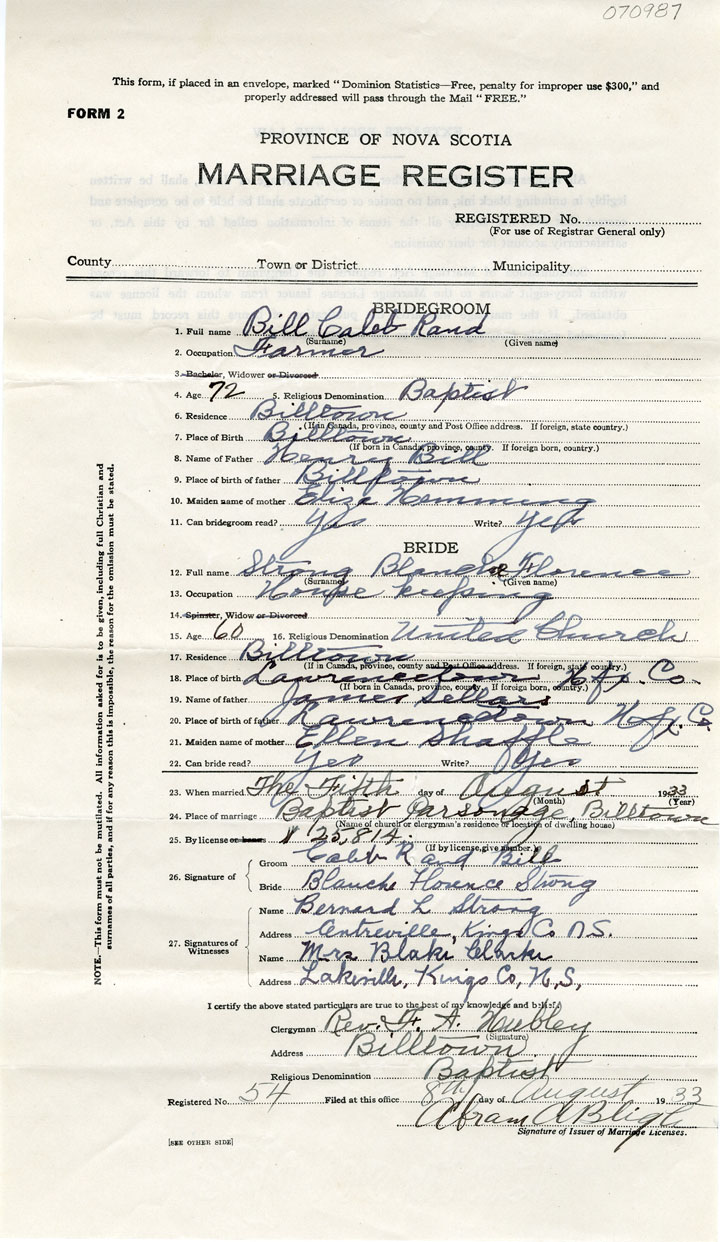 070987
This form, if placed in an envelope, marked "Dominion Statistics—Free, penalty for improper use $300," and
properly addressed will pass through the Mail "FREE."
FORM 2
PROVINCE OF NOVA SCOTIA
MARRIAGE REGISTER
REGISTERED No.
(For use of Registrar General only)
County Town or District Municipality
BRIDEGROOM
1. Full name Bill Caleb Rand
(Surname) (Given name)
2. Occupation Farmer
3. Bachelor, Widower or Divorced
4. Age 72 5. Religious Denomination Baptist
6. Residence Billtown
(If in Canada, province, county and Post Office address. If foreign, state country.)
7. Place of Birth Billtown
(If born in Canada, province, county. If foreign born, country.)
8. Name of Father Henry Bill
9. Place of birth of father Billtown
10. Maiden name of mother Eliza Hemming
11. Can bridegroom read? Yes Write? Yes
BRIDE
12. Full name Strong Blanche Florence
(Surname) (Given name)
13. Occupation House keeping
14. Spinster, Widow or Divorced
15. Age 60 16. Religious Denomination United Church
17. Residence Billtown
(If in Canada, province, county and Post Office address. If foreign, state country.)
18. Place of birth Lawrencetown Hfx. Co.
(If born in Canada, province, county. If foreign born, country.)
19. Name of father James Sellars
20. Place of birth of father Lawrencetown Hfx. Co.
21. Maiden name of mother Ellen
22. Can bride read? Yes Write? Yes
23. When married The Fifth day of August 1933
(Month) (Year)
24. Place of marriage Baptist Parsonage, Billtown
(Name of church or clergyman's residence or location of dwelling house)
25. By license or banns # 125,814.
(If by license, give number.)
26. Signature of
Groom Caleb Rand Bill
Bride Blanche Florence Strong
27. Signatures of Witnesses
Name Bernard L Strong
Address Centreville, Kings Co N.S.
Name Mrs Blake Clarke
Address Lakeville, Kings Co, N.S,
I certify the above stated particulars are true to the best of my knowledge and belief)
Clergyman Rev. F. A.
(Signature)
Address Billtown
Religious Denomination Baptist
Registered No. 54 Filed at this office 8th day of August 1933
Abram A Bligh
Signature of Issuer of Marriage Licenses.
[SEE OTHER SIDE]
NOTE.—This form must not be mutilated. All information asked for is to be given, including full Christian and
surnames of all parties, and if for any reason this is impossible, the reason for the omission must be stated.